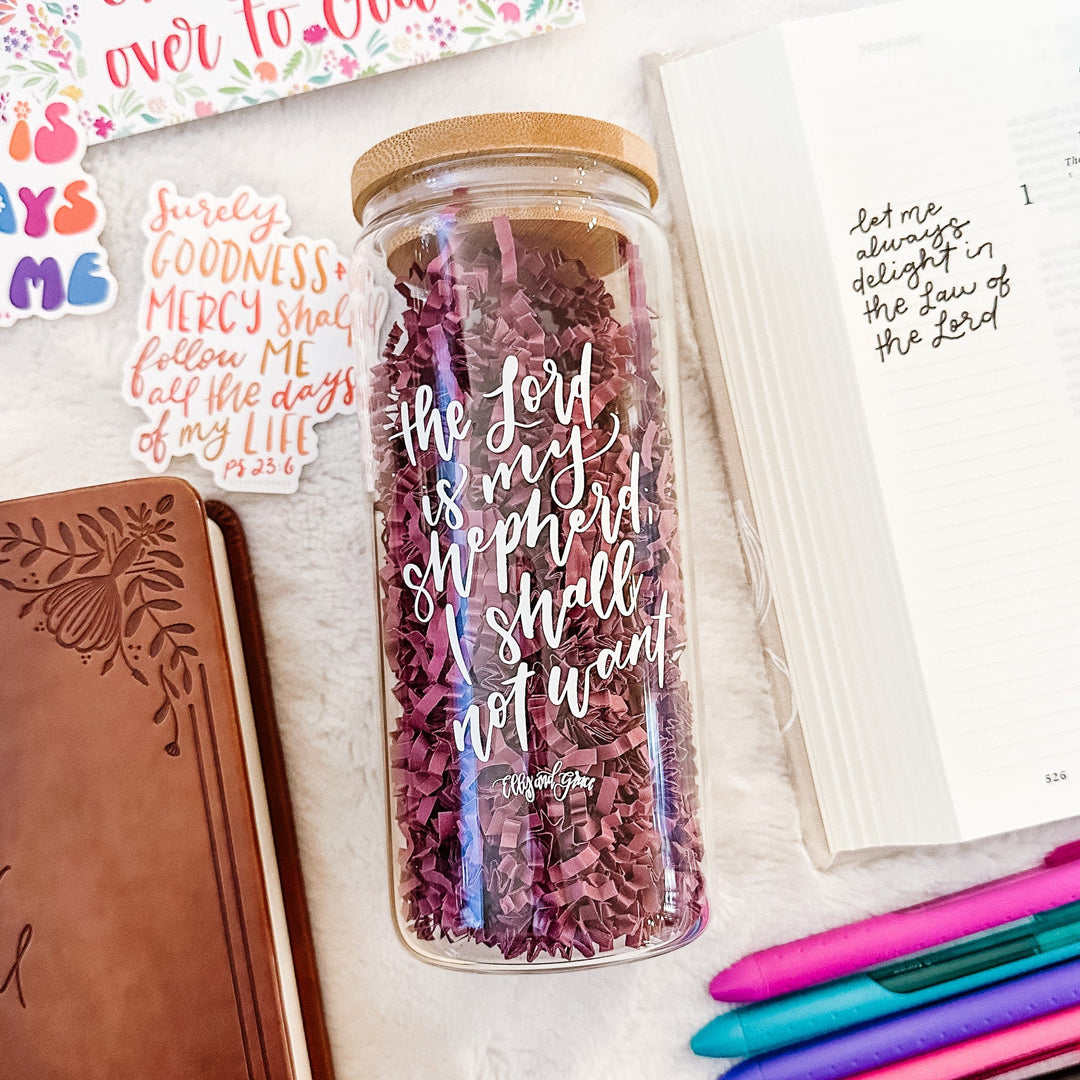 over to God
is
AYS
ME
Surely
GOODNESS +
MERCY shall
follow ME
all the days
of my LIFE
PS 23:6
the Lord
is my
shepherd.
I shall
not want
elly and Grace
let me
always
delight in
the Law of
the Lord
1
The
526